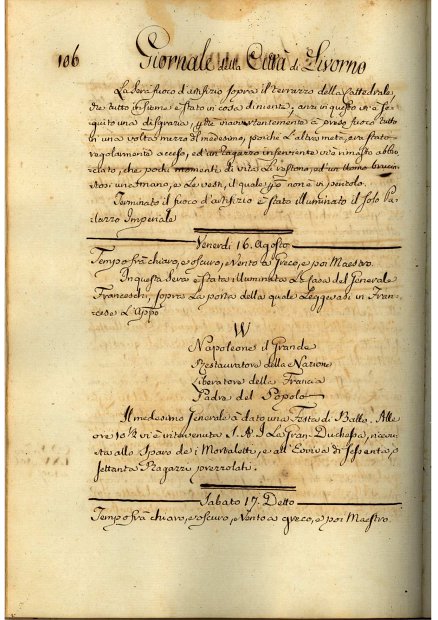 106 Giornale della Città di Livorno
La Sera fuoco d'artifizio sopra il terrazzo della Cattedrale,
che tutto insieme è stato in cosa di niente, anzi in questo vi è se-
guito una disgrazia, che inavvertentemente à preso fuoco tutto
in una volta mezzo il medesimo, poiché l'altra metà, era stato
regolarmente acceso, ed un Ragazzo inserviente vi è rimasto abbru-
ciato, che pochi momenti di vita li restono, ed un Uomo brucia-
tosi una Mano, e le vesti, il quale però non è in pericolo.
Terminato il fuoco d'artifizio è stato illuminato il solo Pa-
lazzo Imperiale
Venerdì 16. Agosto
Tempo frà chiaro, e oscuro, e Vento a Greco, e poi Maestro.
In questa Sera è stata illuminata la Casa del Generale
Franceschi, sopra la porta della quale Leggevasi in Fran-
cese L'Appo
W
Napoleone il Grande
Restauratore della Nazione
Liberatore della Francia
Padre del Popolo
Il medesimo Generale à dato una Festa di Ballo. Alle
ore 10½ vi è intervenuta S. A. I. La Gran Duchessa, ricevu-
ta allo Sparo de i Mortaletti, e all'Evviva di Sessanta, o
settanta Ragazzi prezzolati.
Sabato 17. Detto
Tempo frà chiaro, e oscuro, e Vento a greco, e poi Maestro